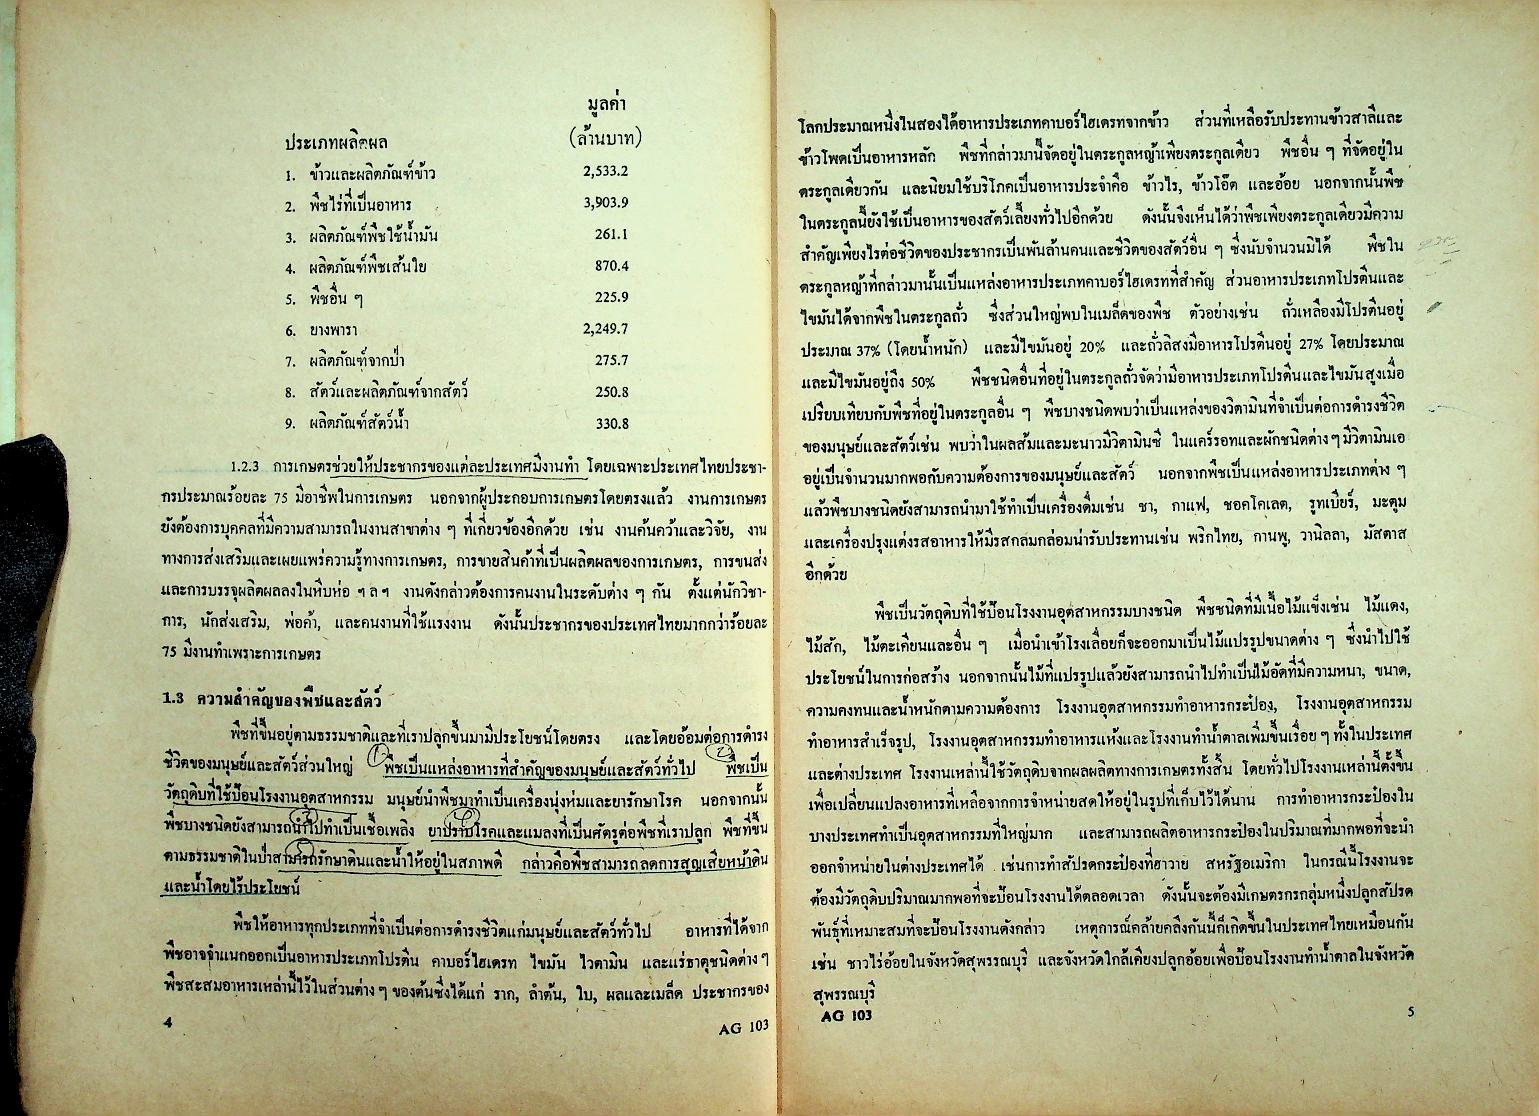 มูลค่า
ประเภทผลิตผล (ล้านบาท)
1. ข้าวและผลิตภัณฑ์ข้าว 2,533.2
2. พืชไร่ที่เป็นอาหาร 3,903.9
3. ผลิตภัณฑ์พืชใช้น้ำมัน 261.1
4. ผลิตภัณฑ์พืชเส้นใย 870.4
5. พืชอื่น ๆ 225.9
6. ยางพารา 2,249.7
7. ผลิตภัณฑ์จากป่า 275.7
8. สัตว์และผลิตภัณฑ์จากสัตว์ 250.8
9. ผลิตภัณฑ์สัตว์น้ำ 330.8
1.2.3 การเกษตรช่วยให้ประชากรของแต่ละประเทศมีงานทำ โดยเฉพาะประเทศไทยประชา-
กรประมาณร้อยละ 75 มีอาชีพในการเกษตร นอกจากผู้ประกอบการเกษตรโดยตรงแล้ว งานการเกษตร
ยังต้องการบุคคลที่มีความสามารถในงานสาขาต่าง ๆ ที่เกี่ยวข้องอีกด้วย เช่น งานค้นคว้าและวิจัย, งาน
ทางการส่งเสริมและเผยแพร่ความรู้ทางการเกษตร, การขายสินค้าที่เป็นผลิตผลของการเกษตร, การขนส่ง
และการบรรจุผลิตผลลงในหีบห่อ ฯลฯ งานดังกล่าวต้องการคนงานในระดับต่าง ๆ กัน ตั้งแต่นักวิชา-
การ, นักส่งเสริม, พ่อค้า, และคนงานที่ใช้แรงงาน ดังนั้นประชากรของประเทศไทยมากกว่าร้อยละ
75 มีงานทำเพราะการเกษตร
1.3 ความสำคัญของพืชและสัตว์
พืชที่ขึ้นอยู่ตามธรรมชาติและที่เราปลูกขึ้นมามีประโยชน์โดยตรง และโดยอ้อมต่อการดำรง
ชีวิตของมนุษย์และสัตว์ส่วนใหญ่ พืชเป็นแหล่งอาหารที่สำคัญของมนุษย์และสัตว์ทั่วไป พืชเป็น
วัตถุดิบที่ใช้ป้อนโรงงานอุตสาหกรรม มนุษย์นำพืชมาทำเป็นเครื่องนุ่งห่มและยารักษาโรค นอกจากนั้น
พืชบางชนิดยังสามารถนำไปทำเป็นเชื้อเพลิง ยาปราบโรคและแมลงที่เป็นศัตรูต่อพืชที่เราปลูก พืชที่ขึ้น
ตามธรรมชาติในป่าสามารถรักษาดินและน้ำให้อยู่ในสภาพดี กล่าวคือพืชสามารถลดการสูญเสียหน้าดิน
และน้ำโดยไร้ประโยชน์
พืชให้อาหารทุกประเภทที่จำเป็นต่อการดำรงชีวิตแก่มนุษย์และสัตว์ทั่วไป อาหารที่ได้จาก
พืชอาจจำแนกออกเป็นอาหารประเภทโปรตีน คาบอร์ไฮเดรท ไขมัน ไวตามิน และแร่ธาตุชนิดต่าง ๆ
พืชสะสมอาหารเหล่านี้ไว้ในส่วนต่าง ๆ ของต้นซึ่งได้แก่ ราก, ลำต้น, ใบ, ผลและเมล็ด ประชากรของ
4 AG 103
โลกประมาณหนึ่งในสองได้อาหารประเภทคาบอร์ไฮเดรทจากข้าว ส่วนที่เหลือรับประทานข้าวสาลีและ
ข้าวโพดเป็นอาหารหลัก พืชที่กล่าวมานี้จัดอยู่ในตระกูลหญ้าเพียงตระกูลเดียว พืชอื่น ๆ ที่จัดอยู่ใน
ตระกูลเดียวกัน และนิยมใช้บริโภคเป็นอาหารประจำคือ ข้าวไร, ข้าวโอ๊ต และอ้อย นอกจากนั้นพืช
ในตระกูลนี้ยังใช้เป็นอาหารของสัตว์เลี้ยงทั่วไปอีกด้วย ดังนั้นจึงเห็นได้ว่าพืชเพียงตระกูลเดียวมีความ
สำคัญเพียงไรต่อชีวิตของประชากรเป็นพันล้านคนและชีวิตของสัตว์อื่น ๆ ซึ่งนับจำนวนมิได้ พืชใน
ตระกูลหญ้าที่กล่าวมานั้นเป็นแหล่งอาหารประเภทคาบอร์ไฮเดรทที่สำคัญ ส่วนอาหารประเภทโปรตีนและ
ไขมันได้จากพืชในตระกูลถั่ว ซึ่งส่วนใหญ่พบในเมล็ดของพืช ตัวอย่างเช่น ถั่วเหลืองมีโปรตีนอยู่
ประมาณ 37% (โดยน้ำหนัก) และมีไขมันอยู่ 20% และถั่วลิสงมีอาหารโปรตีนอยู่ 27% โดยประมาณ
และมีไขมันอยู่ถึง 50% พืชชนิดอื่นที่อยู่ในตระกูลถั่วจัดว่ามีอาหารประเภทโปรตีนและไขมันสูงเมื่อ
เปรียบเทียบกับพืชที่อยู่ในตระกูลอื่น ๆ พืชบางชนิดพบว่าเป็นแหล่งของวิตามินที่จำเป็นต่อการดำรงชีวิต
ของมนุษย์และสัตว์เช่น พบว่าในผลส้มและมะนาวมีวิตามินซี ในแคร์รอทและผักชนิดต่าง ๆ มีวิตามินเอ
อยู่เป็นจำนวนมากพอกับความต้องการของมนุษย์และสัตว์ นอกจากพืชเป็นแหล่งอาหารประเภทต่าง ๆ
แล้วพืชบางชนิดยังสามารถนำมาใช้ทำเป็นเครื่องดื่มเช่น ชา, กาแฟ, ชอคโคเลต, รูทเบียร์, มะตูม
และเครื่องปรุงแต่งรสอาหารให้มีรสกลมกล่อมน่ารับประทานเช่น พริกไทย, กานพู, วานิลลา, มัสตาส
อีกด้วย
พืชเป็นวัตถุดิบที่ใช้ป้อนโรงงานอุตสาหกรรมบางชนิด พืชชนิดที่มีเนื้อไม้แข็งเช่น ไม้แดง,
ไม้สัก, ไม้ตะเคียนและอื่น ๆ เมื่อนำเข้าโรงเลื่อยก็จะออกมาเป็นไม้แปรรูปขนาดต่าง ๆ ซึ่งนำไปใช้
ประโยชน์ในการก่อสร้าง นอกจากนั้นไม้ที่แปรรูปแล้วยังสามารถนำไปทำเป็นไม้อัดที่มีความหนา, ขนาด,
ความคงทนและน้ำหนักตามความต้องการ โรงงานอุตสาหกรรมทำอาหารกระป๋อง, โรงงานอุตสาหกรรม
ทำอาหารสำเร็จรูป, โรงงานอุตสาหกรรมทำอาหารแห้งและโรงงานทำน้ำตาลเพิ่มขึ้นเรื่อย ๆ ทั้งในประเทศ
และต่างประเทศ โรงงานเหล่านี้ใช้วัตถุดิบจากผลผลิตทางการเกษตรทั้งสิ้น โดยทั่วไปโรงงานเหล่านี้ตั้งขึ้น
เพื่อเปลี่ยนแปลงอาหารที่เหลือจากการจำหน่ายสดให้อยู่ในรูปที่เก็บไว้ได้นาน การทำอาหารกระป๋องใน
บางประเทศทำเป็นอุตสาหกรรมที่ใหญ่มาก และสามารถผลิตอาหารกระป๋องในปริมาณที่มากพอที่จะนำ
ออกจำหน่ายในต่างประเทศได้ เช่นการทำสัปรดกระป๋องที่ฮาวาย สหรัฐอเมริกา ในกรณีนี้โรงงานจะ
ต้องมีวัตถุดิบปริมาณมากพอที่จะป้อนโรงงานได้ตลอดเวลา ดังนั้นจะต้องมีเกษตรกรกลุ่มหนึ่งปลูกสัปรด
พันธุ์ที่เหมาะสมที่จะป้อนโรงงานดังกล่าว เหตุการณ์คล้ายคลึงกันนี้ก็เกิดขึ้นในประเทศไทยเหมือนกัน
เช่น ชาวไร่อ้อยในจังหวัดสุพรรณบุรี และจังหวัดใกล้เคียงปลูกอ้อยเพื่อป้อนโรงงานทำน้ำตาลในจังหวัด
สุพรรณบุรี
AG 103 5